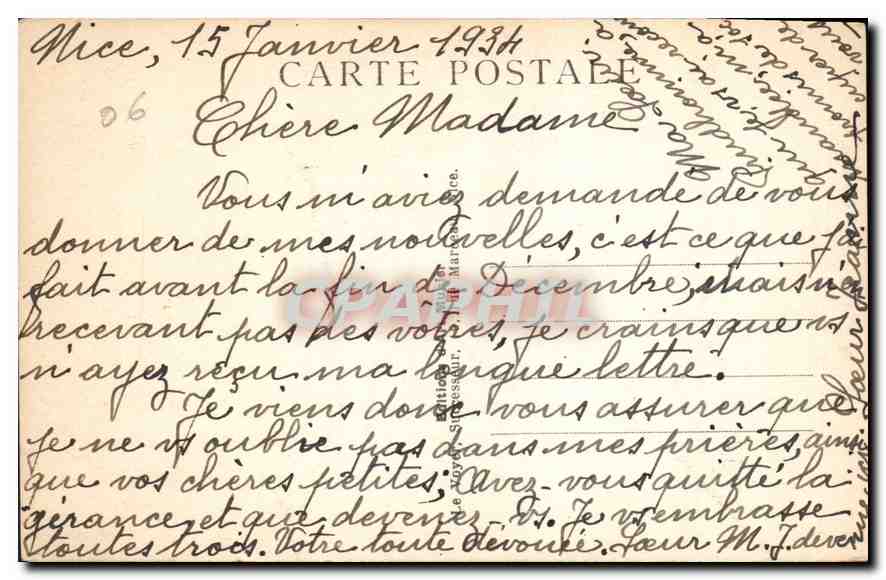 Nice, 15 Janvier 1934
CARTE POSTALE
06
Chère Madame
Vous m'aviez demandé de vous
donner de mes nouvelles, c'est ce que j'ai
fait avant la fin de Décembre, mais n'en
recevant pas des vôtres, je crains que vs
n'ayez reçu ma longue lettre.
Je viens donc vous assurer que
je ne vs oublie pas dans mes prières, ainsi
que vos chères petites; Avez-vous quitté la
gérance, et que devenez-vs. Je vs embrasse
toutes trois. Votre toute dévouée. Sœur M. J. de
Ma Sœur
CPAPHIL
Editions
Le Voyer, Successeur, Rue Marceau, Nice.